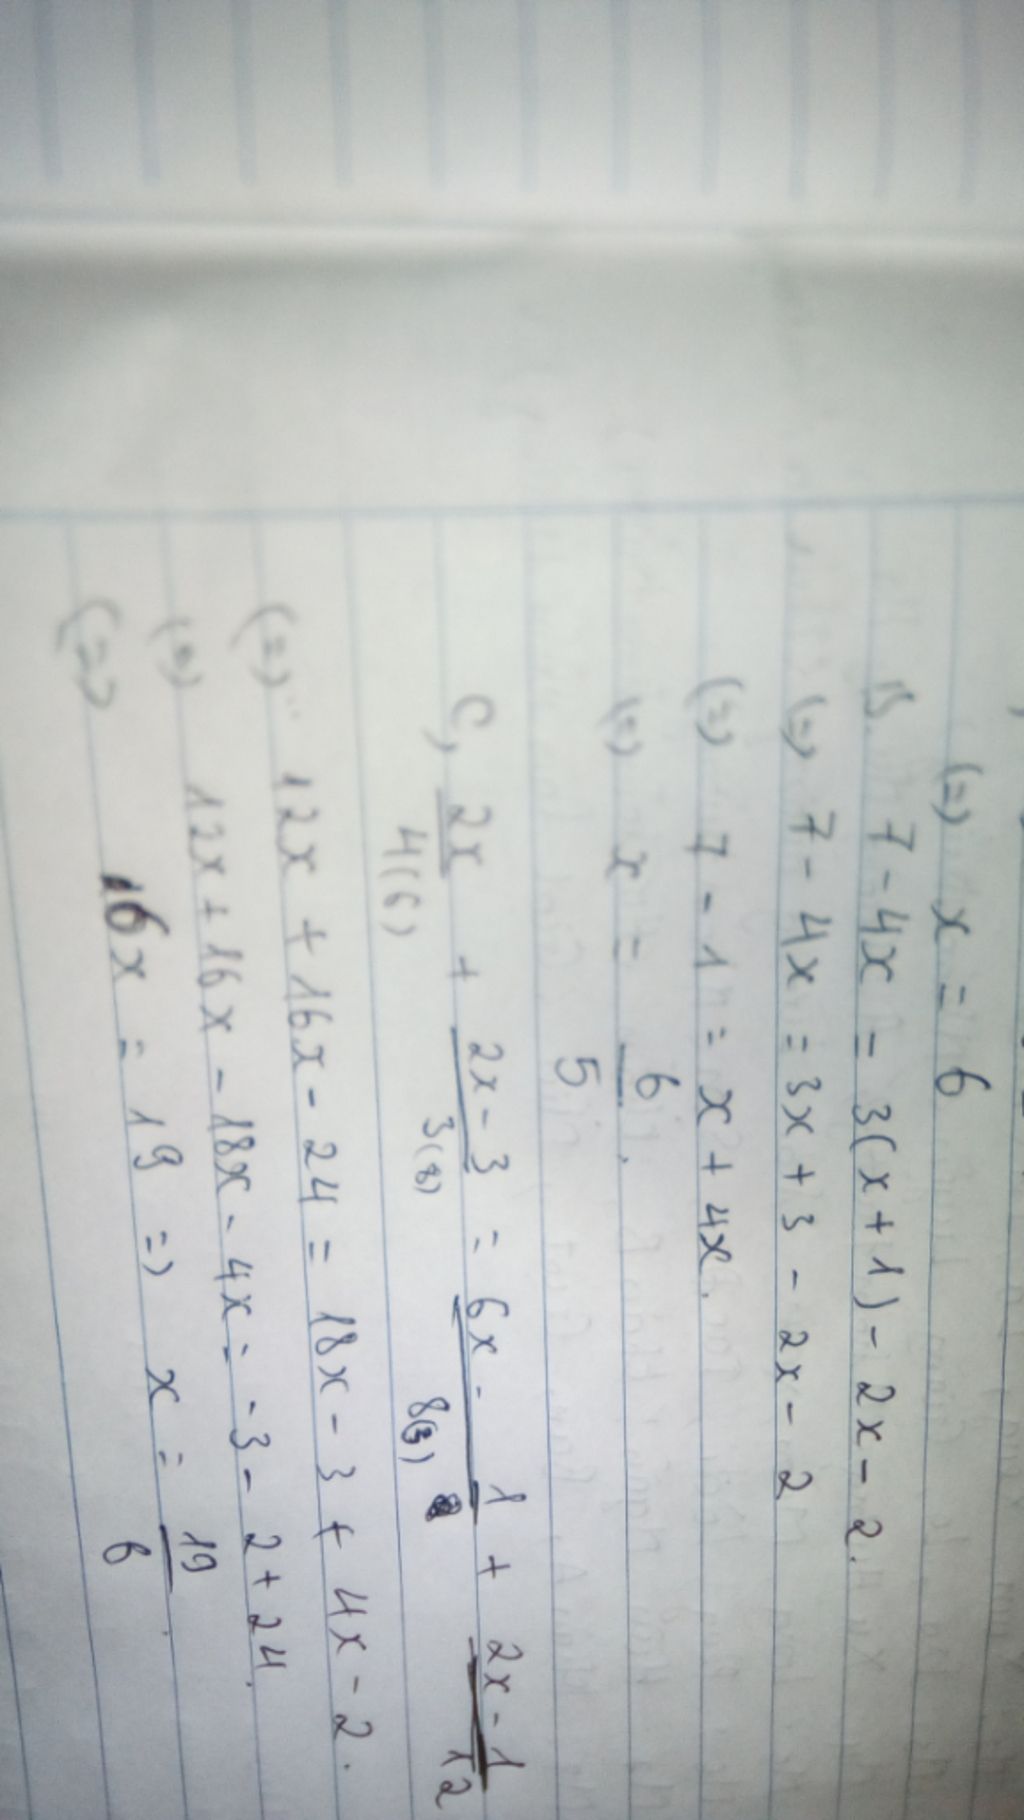 (=) x = 6
B. 7 - 4x = 3(x + 1) - 2x - 2.
(=) 7 - 4x = 3x + 3 - 2x - 2
(=) 7 - 1 = x + 4x.
(=) x = 6/5.
C, 2x/4(6) + 2x - 3/3(8) = 6x - 1/8(3) + 2x - 1/12
(=) 12x + 16x - 24 = 18x - 3 + 4x - 2.
(=) 12x + 16x - 18x - 4x = -3 - 2 + 24.
(=) 6x = 19 => x = 19/6.